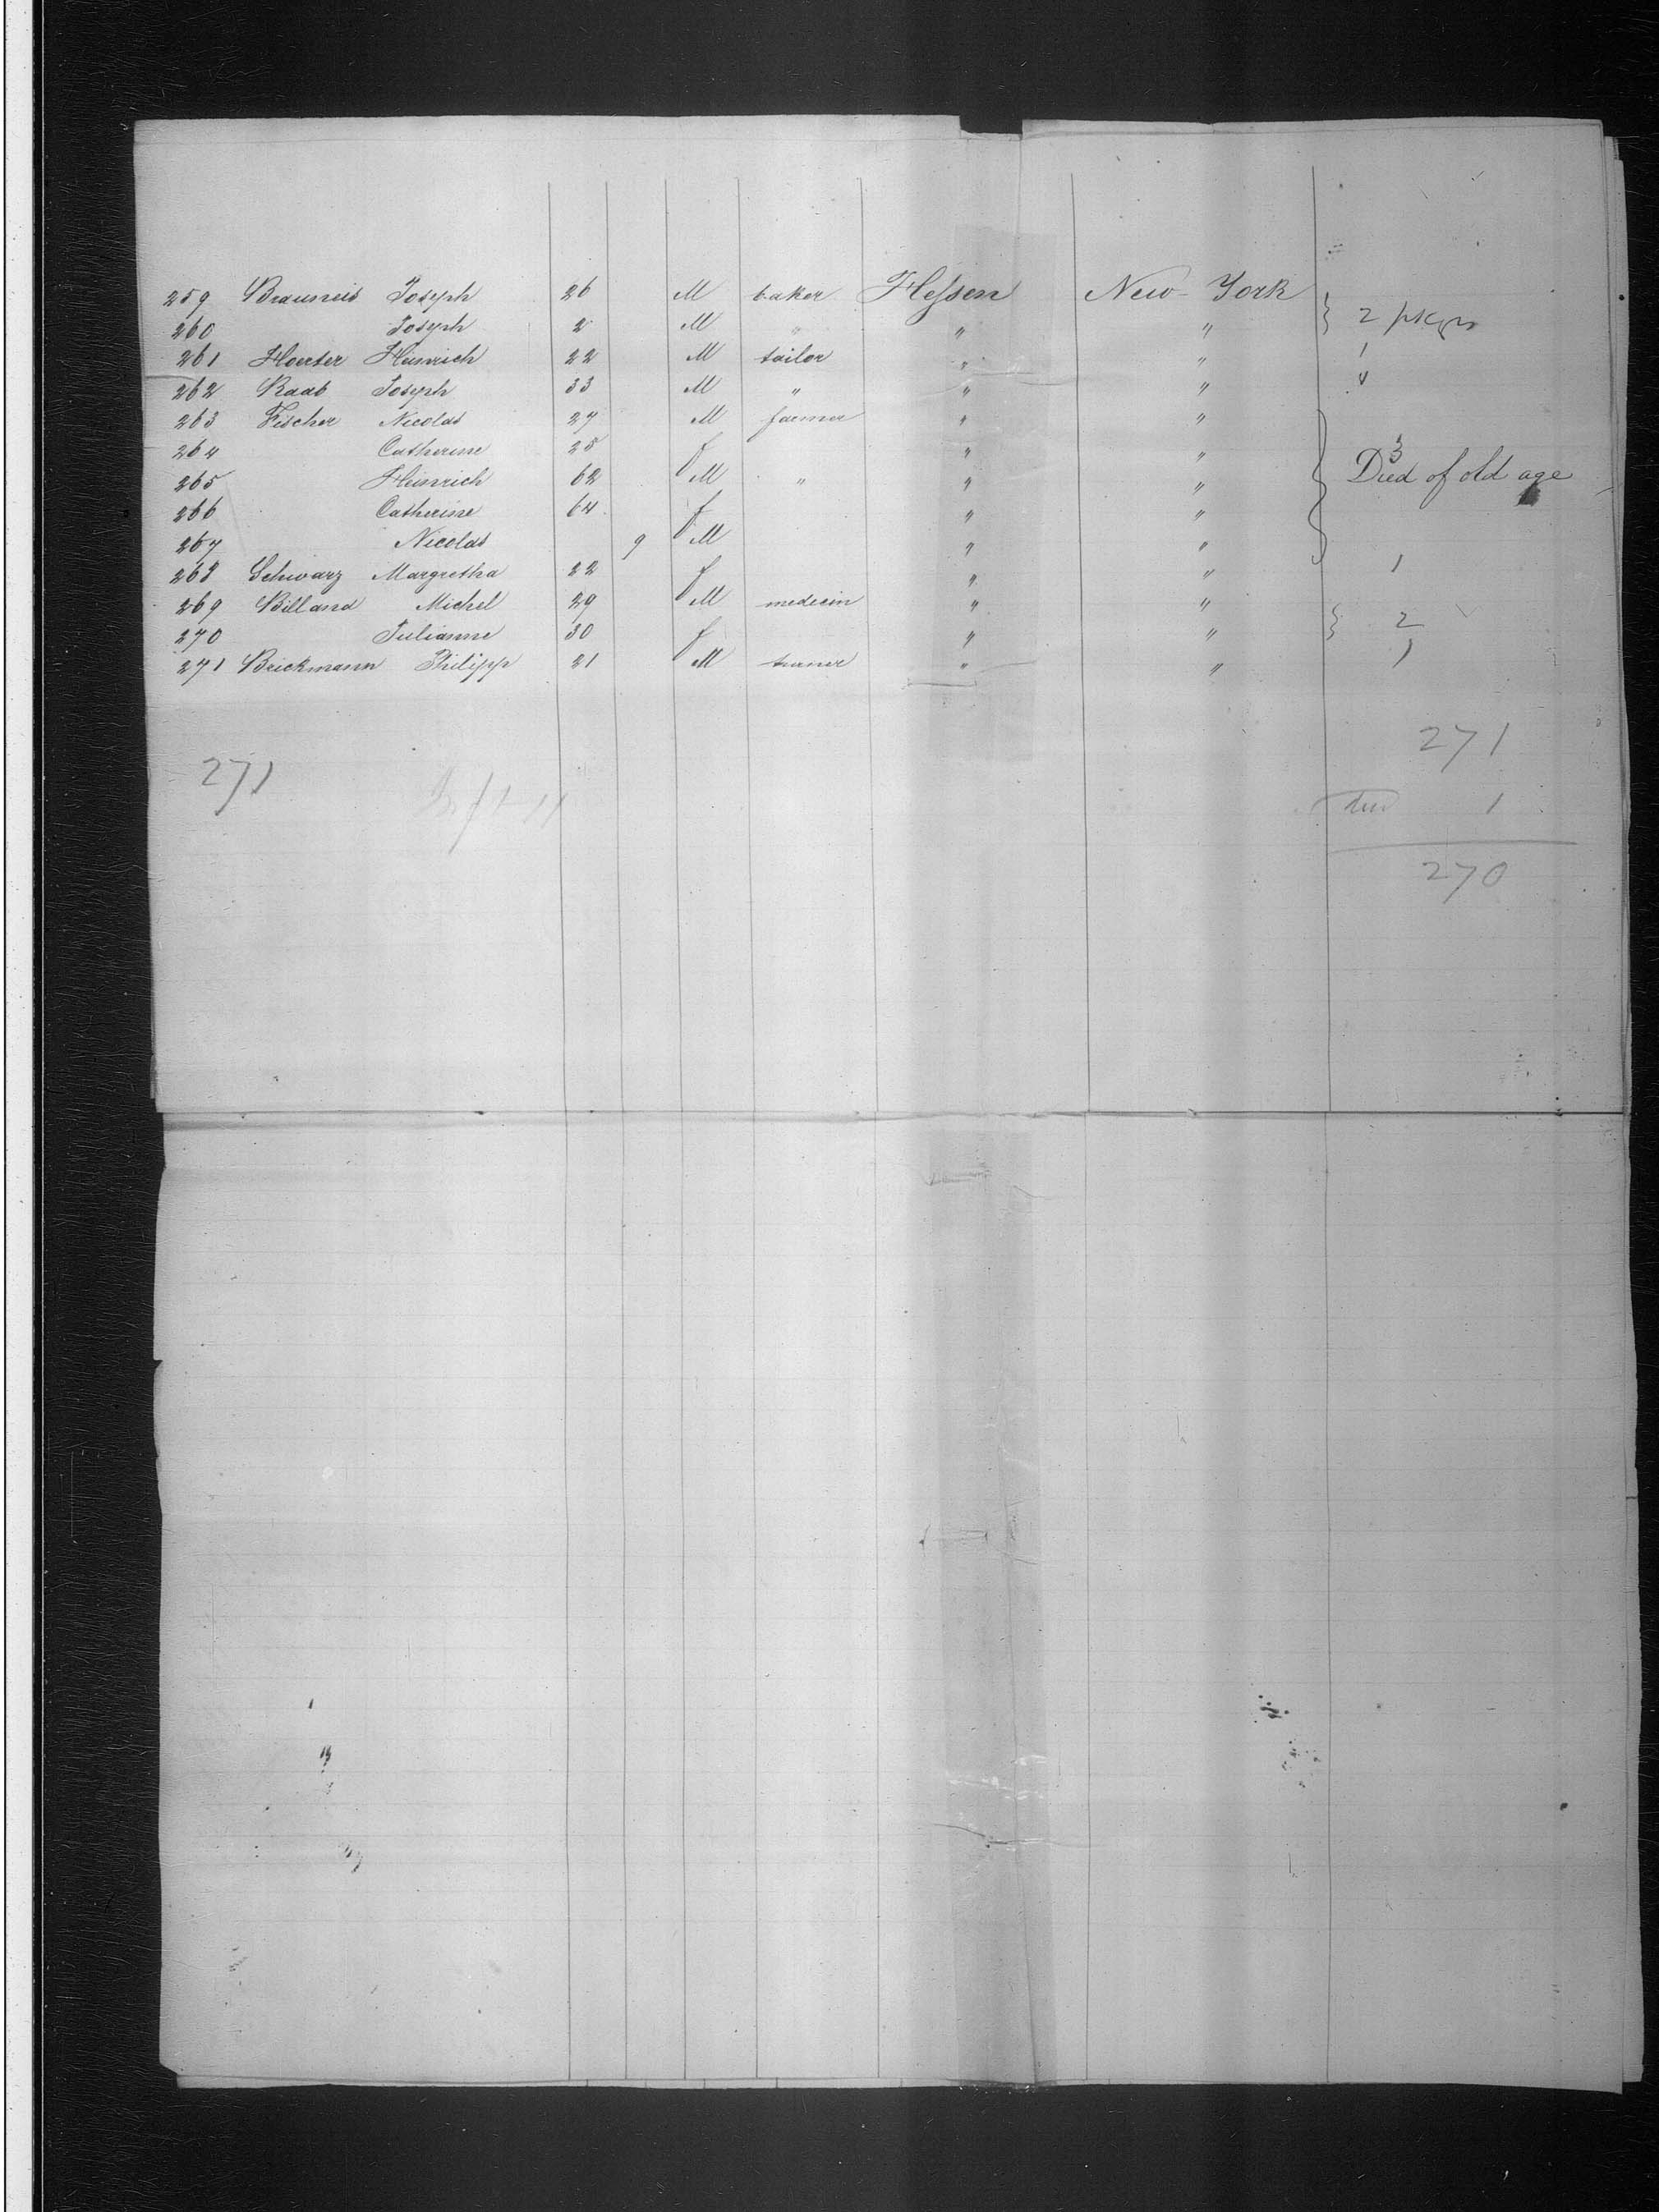 259 Brauneis Joseph 26 M baker Hessen New-York 2 pkgs
260 Joseph 2 M " " "
261 Heuser Heinrich 22 M tailor " " 1
262 Raab Joseph 33 M " " "
263 Fischer Nicolas 27 M farmer " "
264 Catherine 25 f " " 3
265 Heinrich 62 M " " " Died of old age
266 Catherine 64 f " "
267 Nicolas 9 M " "
268 Schwarz Margretha 22 f " " 1
269 Billand Michel 29 M medecin " " 2
270 Julianne 30 f " "
271 Brickmann Philipp 21 M turner " " 1
271
271
1
270